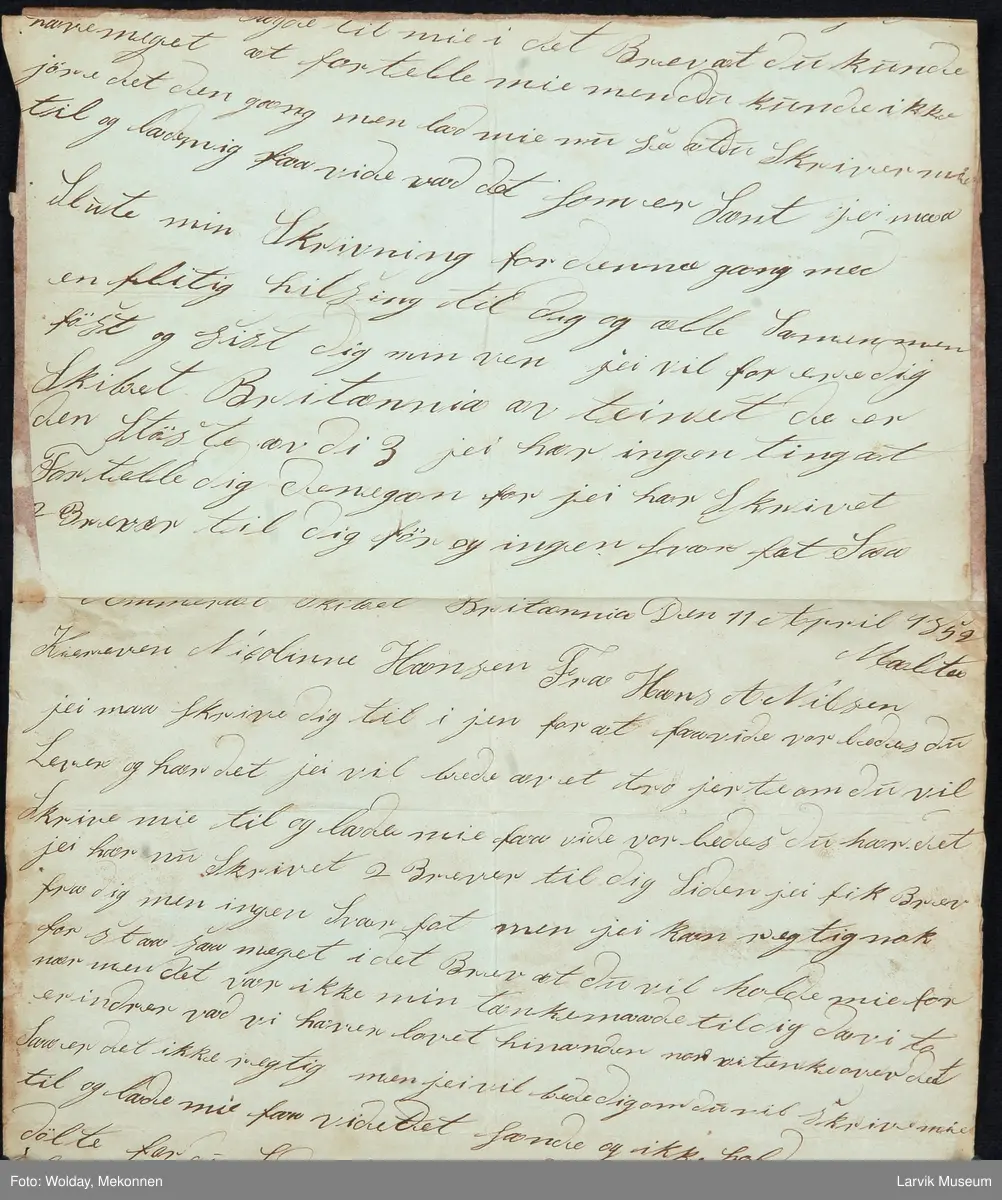 sagde til mie i det Brev at du kunde
nave meget at fortelle mie men du kunde ikke
jöre det den gang men lad mie nu så at du Skriver mie
til og lade mig faa vide vad det som er Sant jei maa
Slute min Skrivning for denne gang med
en flitig hilsing til dig og alle Samen men
föst og sist dig min ven jei vil for ere dig
Skibet Britannia av teinet de er
den Stöste av di 3 jei har ingen ting at
Fortelle dig denegan for jei har Skrivet
2 Brever til dig för og ingen svar fat Saa
Skibet Britannia Den 11 April 1859
Malta
Kiereven Nicolinne Hansen Fra Hans A Nilsen
jei maa skrive dig til i jen for at faa vide vor ledes du
Lever og har det jei vil bede av et tro jerte om du vil
Skrive mie til og lade mie faa vide vor ledes du har det
jei har nu Skrivet 2 Brever til dig Siden jei fik Brev
fra dig men ingen Svar fat men jei kan regtig nok
for staa saa meget i det Brev at du vil holde mie for
nar men det var ikke min tankemaade til dig da vi to
erindrer vad vi haver lovet hinanden nar vi tenke over det
Saa er det ikke regtig men jei vil bede dig om du vil Skrive mie
til og lade mie faa vide Det Sande og ikke hol
dölte for
Foto: Wolday, Mekonnen
Larvik Museum